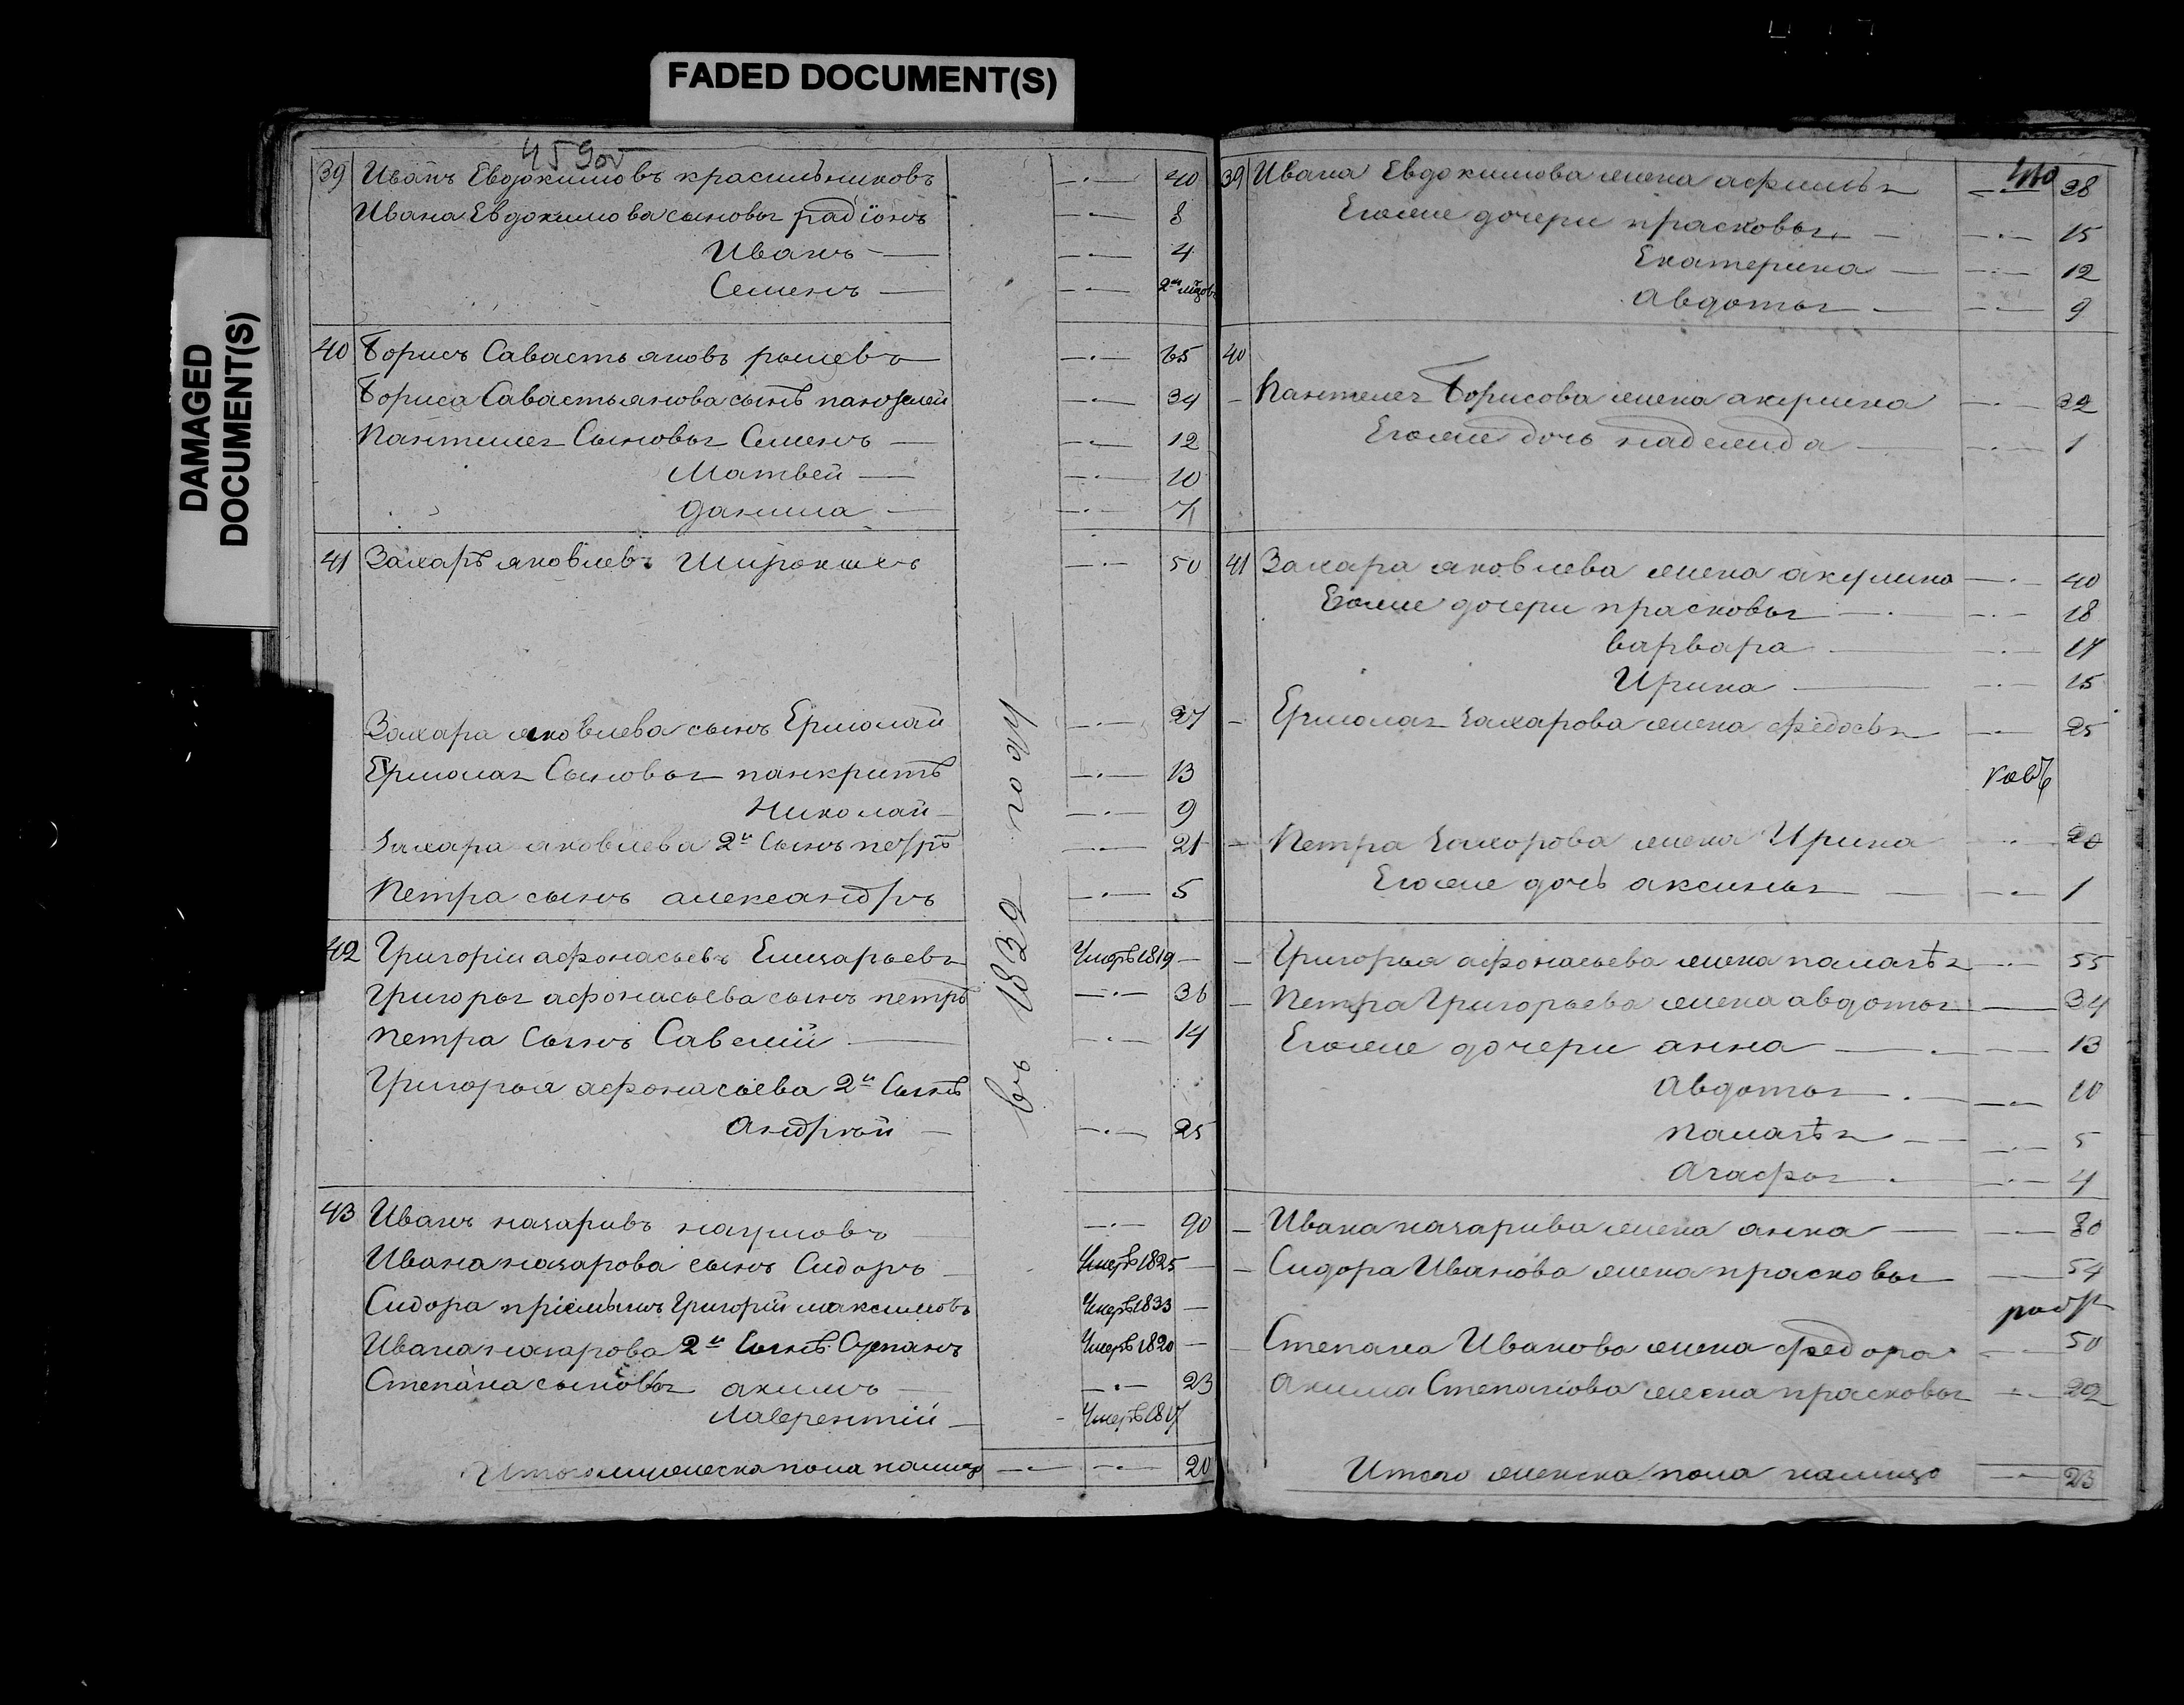 FADED DOCUMENT(S)
DAMAGED
DOCUMENT(S)
459об
39 Иванъ Евдокимовъ красильниковъ 40
Ивана Евдокимова сыновья радіонъ 8
Иванъ 4
Семенъ
40 Борисъ Савастьяновъ 65
Бориса Савастьянова сынъ пантелей 34
Пантелея Сыновья Семенъ 12
Матвей 10
данила 7
41 Захаръ яковлевъ 50
Захара яковлева сынъ Ермолай 27
Ермолая Сыновья панкратъ 13
Николай 9
Захара яковлева 2й Сынъ петръ 21
Петра сынъ александръ 5
42 Григорій афонасьевъ Елизарьевъ Умеръ 1819
Григорья афонасьева сынъ петръ 36
Петра Сынъ Савелій 14
Григорья афонасьева 2й Сынъ
Андрѣй 25
43 Иванъ назаровъ наумовъ 90
Ивана назарова сынъ Сидоръ Умеръ 1825
Сидора пріемышъ Григорій максимовъ Умеръ 1833
Ивана назарова 2й Сынъ Степанъ Умеръ 1820
Степана сыновья акимъ 23
Лаврентій Умеръ 1817
Итого мужеска пола налицо 20
въ 1832 году
460
39 Ивана Евдокимова жена афимья 38
Егоже дочери прасковья 15
Екатерина 12
Авдотья 9
40
Пантелея Борисова жена акулина 32
Егоже дочь надежда 1
41 Захара яковлева жена акулина 40
Егоже дочери прасковья 18
варвара 17
Ирина 15
Ермолая Захарова жена федосья 25
Петра Захарова жена Ирина 20
Егоже дочь аксинья 1
Григорья афонасьева жена палагѣя 55
Петра Григорьева жена авдотья 34
Егоже дочери анна 13
Авдотья 10
палагѣя 5
Агафья 4
Ивана назарова жена анна 80
Сидора Иванова жена прасковья 54
Степана Иванова жена федора 50
Акима Степанова жена прасковья 22
Итого женска пола налицо 23